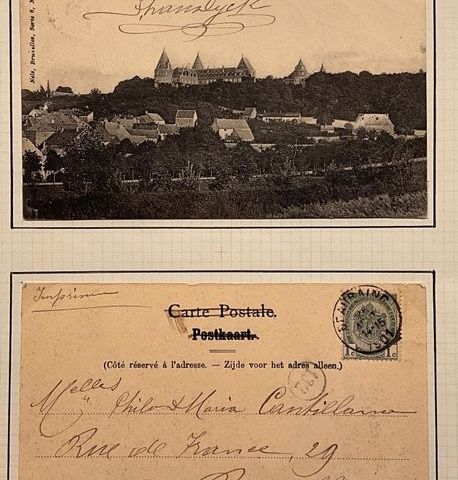 Nels, Bruxelles, Serie 8, N
Imprimé
Carte Postale.
Postkaart.
(Côté réservé à l'adresse. — Zijde voor het adres alleen.)
BEAURAING
1904
1c 1c
Melles Philo & Maria Cantillana
Rue de France, 29